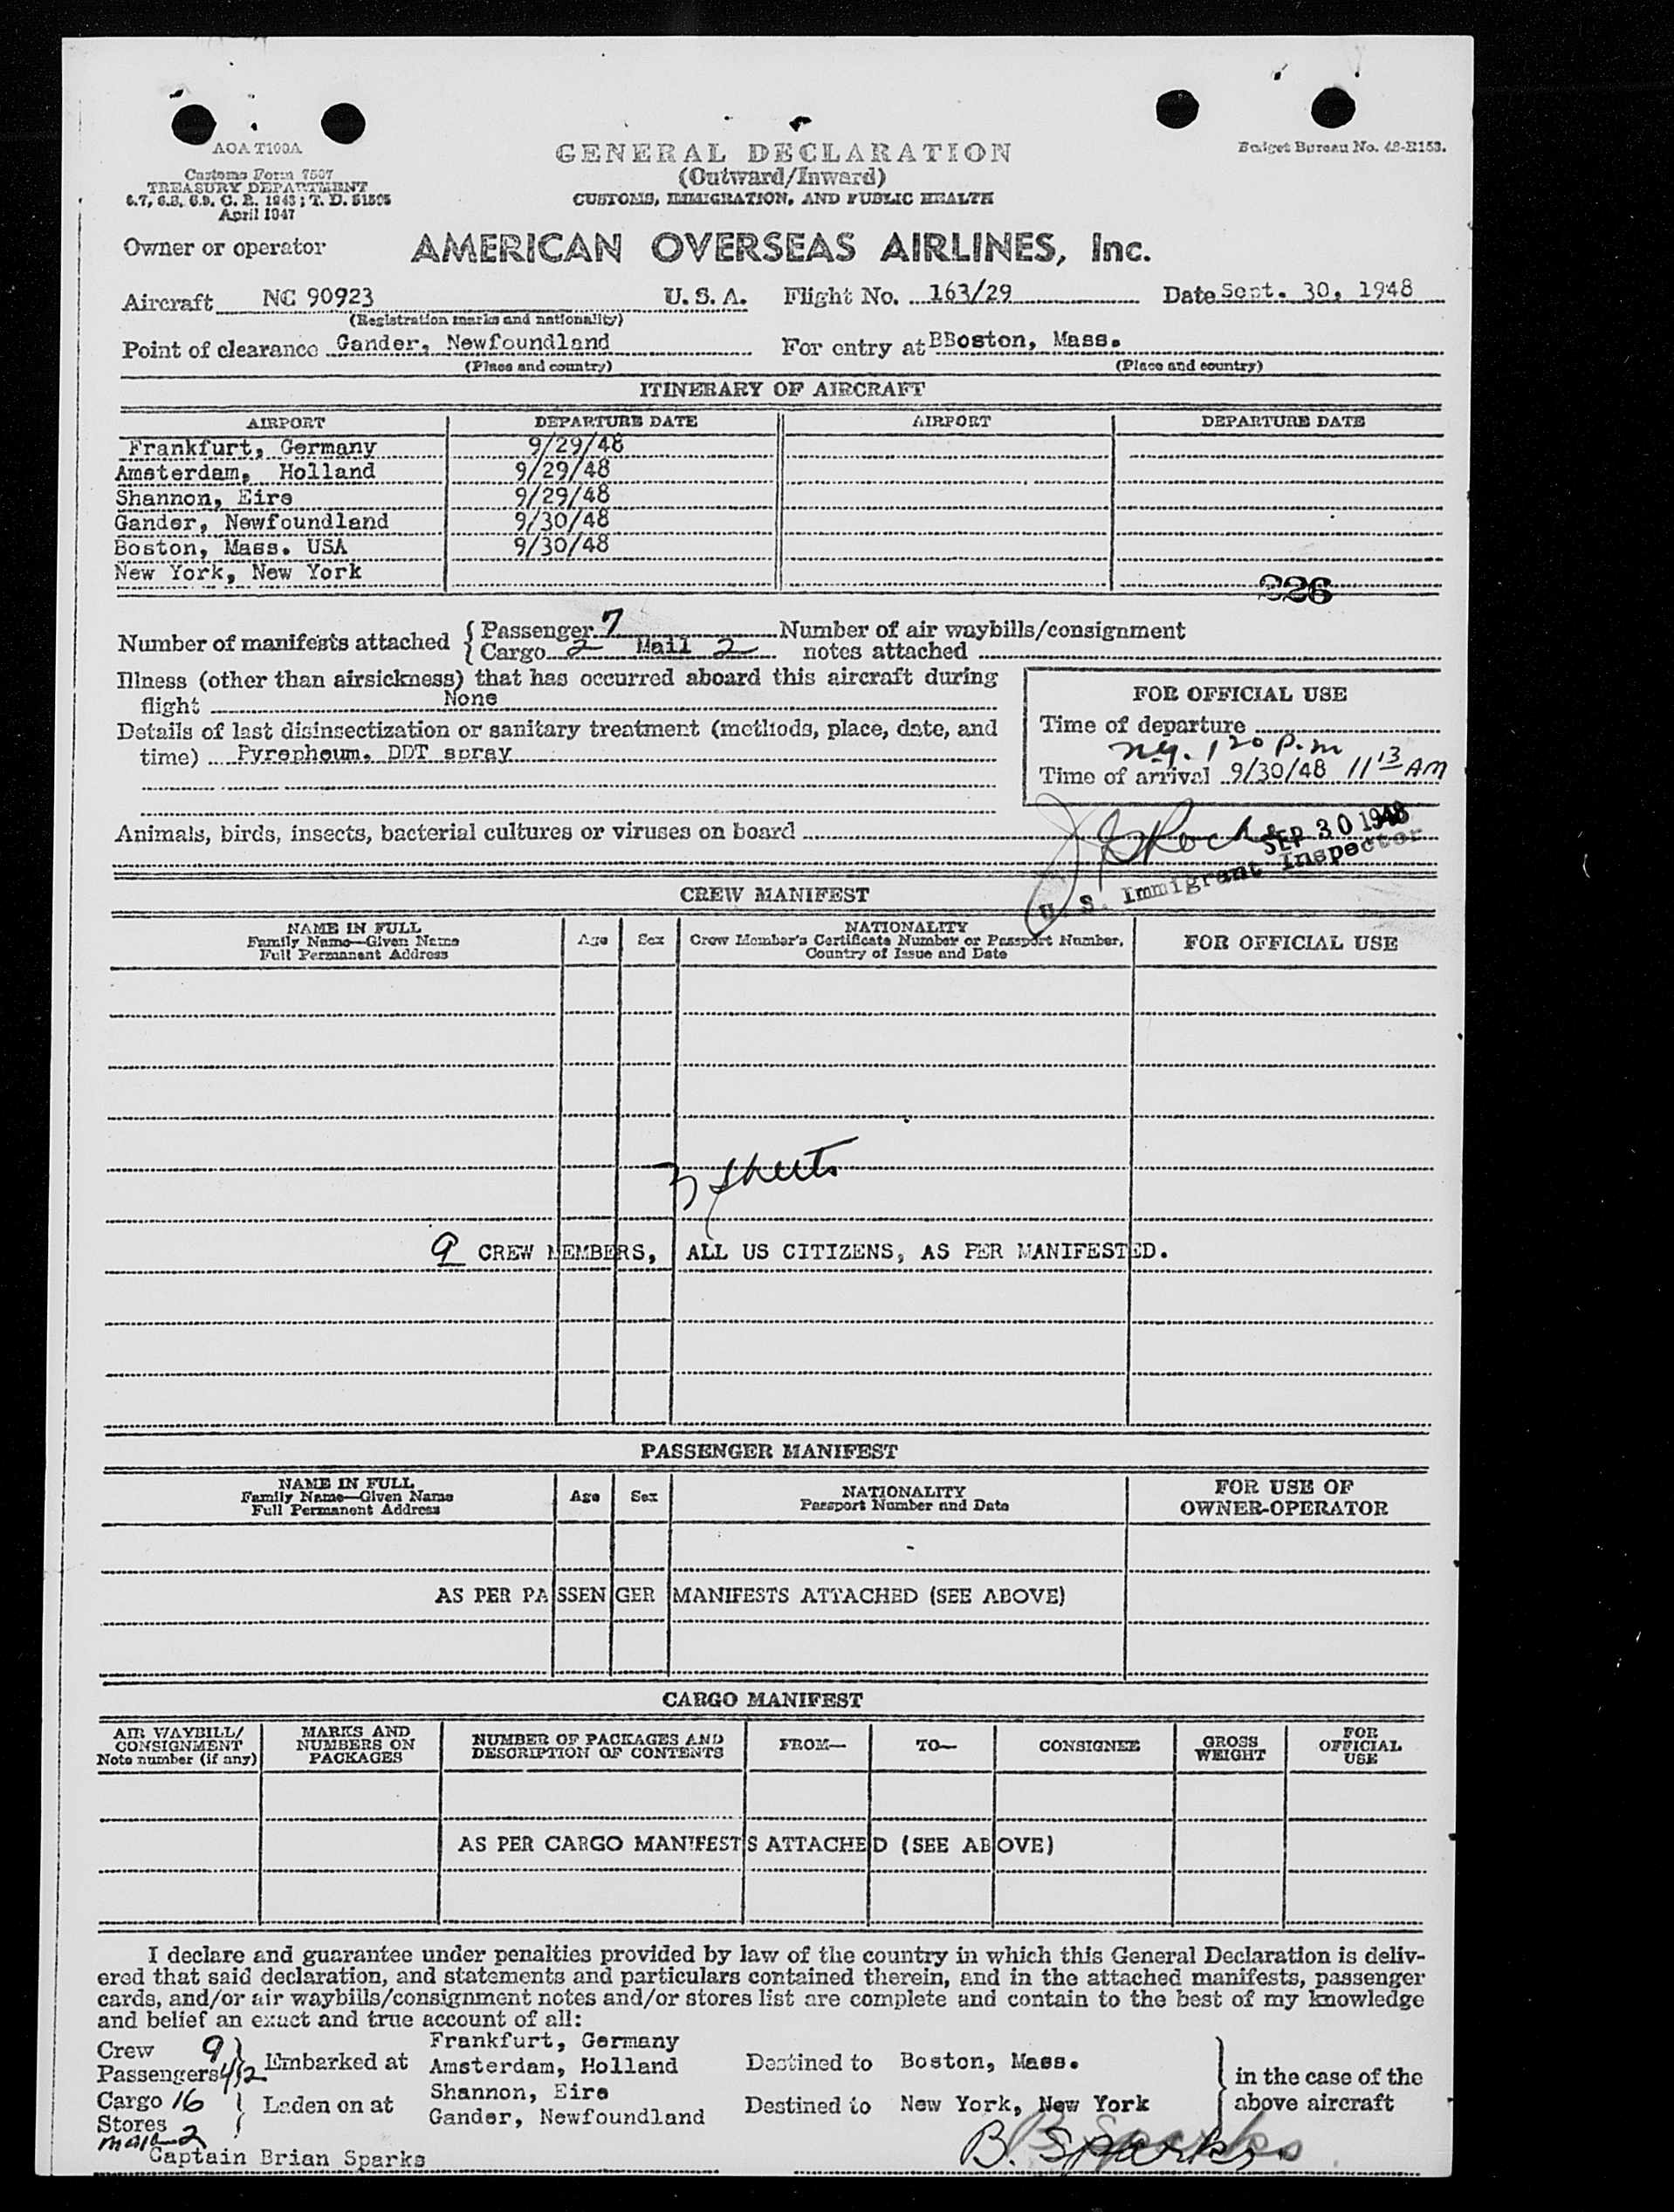 AOA T100A
Customs Form 7507
TREASURY DEPARTMENT
6.7, 6.8, 6.9, C. R. 1943; T. D. 51505
April 1947
GENERAL DECLARATION
(Outward/Inward)
CUSTOMS, IMMIGRATION, AND PUBLIC HEALTH
Budget Bureau No. 48-R153.
Owner or operator AMERICAN OVERSEAS AIRLINES, Inc.
Aircraft NC 90923 U. S. A. Flight No. 163/29 Date Sept. 30, 1948
(Registration marks and nationality)
Point of clearance Gander, Newfoundland For entry at BBoston, Mass.
(Place and country) (Place and country)
ITINERARY OF AIRCRAFT
AIRPORT DEPARTURE DATE AIRPORT DEPARTURE DATE
Frankfurt, Germany 9/29/48
Amsterdam, Holland 9/29/48
Shannon, Eire 9/29/48
Gander, Newfoundland 9/30/48
Boston, Mass. USA 9/30/48
New York, New York
326
Number of manifests attached { Passenger 7 Number of air waybills/consignment
Cargo 2 Mail 2 notes attached
Illness (other than airsickness) that has occurred aboard this aircraft during
flight None
Details of last disinsectization or sanitary treatment (methods, place, date, and
time) Pyrepheum. DDT spray
FOR OFFICIAL USE
Time of departure
N.Y. 1 20 P.M
Time of arrival 9/30/48 11 13 AM
Animals, birds, insects, bacterial cultures or viruses on board
SEP 30 1948
U. S. Immigrant Inspector
CREW MANIFEST
NAME IN FULL
Family Name—Given Name
Full Permanent Address
Age
Sex
NATIONALITY
Crew Member's Certificate Number or Passport Number,
Country of Issue and Date
FOR OFFICIAL USE
sheets
9 CREW MEMBERS, ALL US CITIZENS, AS PER MANIFESTED.
PASSENGER MANIFEST
NAME IN FULL
Family Name—Given Name
Full Permanent Address
Age
Sex
NATIONALITY
Passport Number and Date
FOR USE OF
OWNER-OPERATOR
AS PER PASSENGER MANIFESTS ATTACHED (SEE ABOVE)
CARGO MANIFEST
AIR WAYBILL/
CONSIGNMENT
Note number (if any)
MARKS AND
NUMBERS ON
PACKAGES
NUMBER OF PACKAGES AND
DESCRIPTION OF CONTENTS
FROM—
TO—
CONSIGNEE
GROSS
WEIGHT
FOR
OFFICIAL
USE
AS PER CARGO MANIFESTS ATTACHED (SEE ABOVE)
I declare and guarantee under penalties provided by law of the country in which this General Declaration is deliv-
ered that said declaration, and statements and particulars contained therein, and in the attached manifests, passenger
cards, and/or air waybills/consignment notes and/or stores list are complete and contain to the best of my knowledge
and belief an exact and true account of all:
Crew 9
Passengers 42
} Embarked at
Cargo 16
Stores
} Laden on at
Mail 2
Frankfurt, Germany
Amsterdam, Holland
Shannon, Eire
Gander, Newfoundland
Destined to Boston, Mass.
Destined to New York, New York
} in the case of the
above aircraft
Captain Brian Sparks
B. Sparks